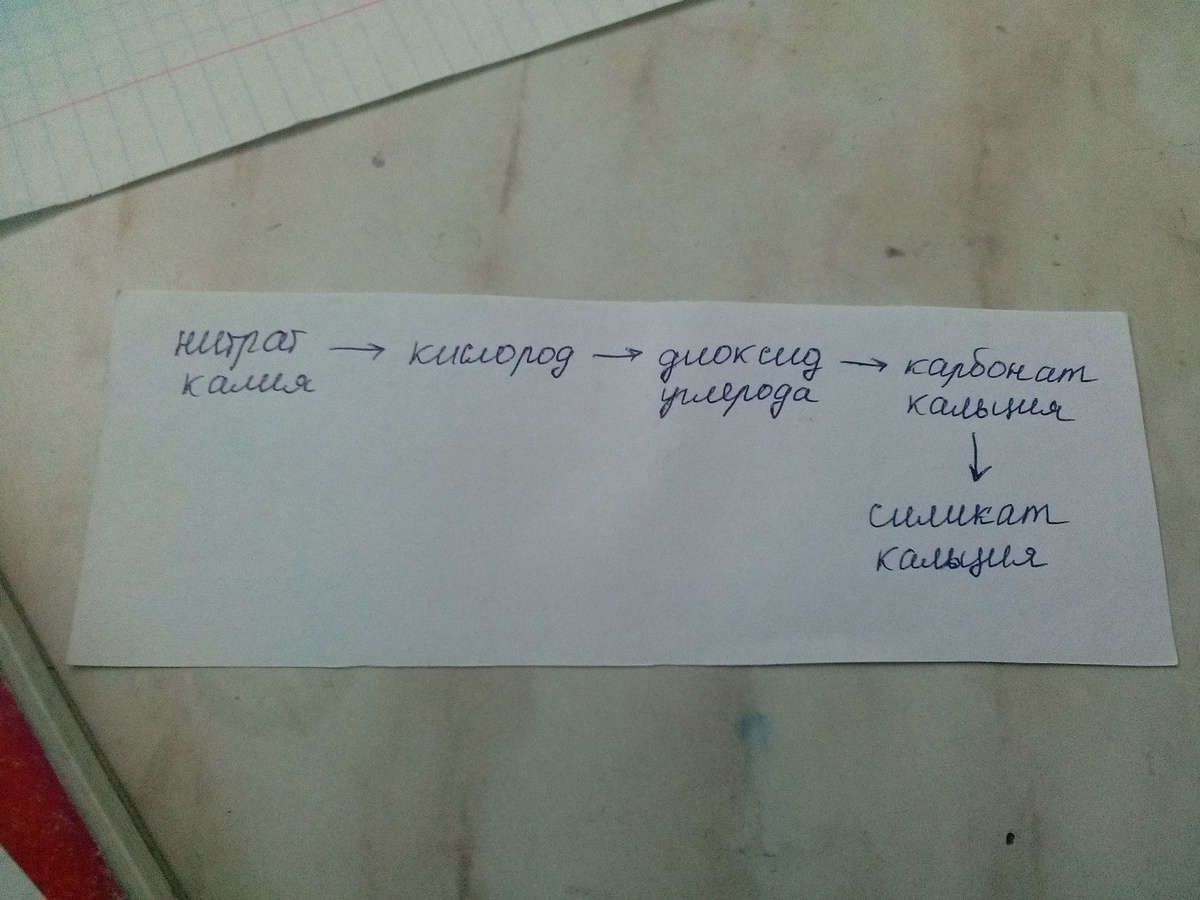 нитрат → кислород → диоксид → карбонат
калия углерода кальция
↓
силикат
кальция